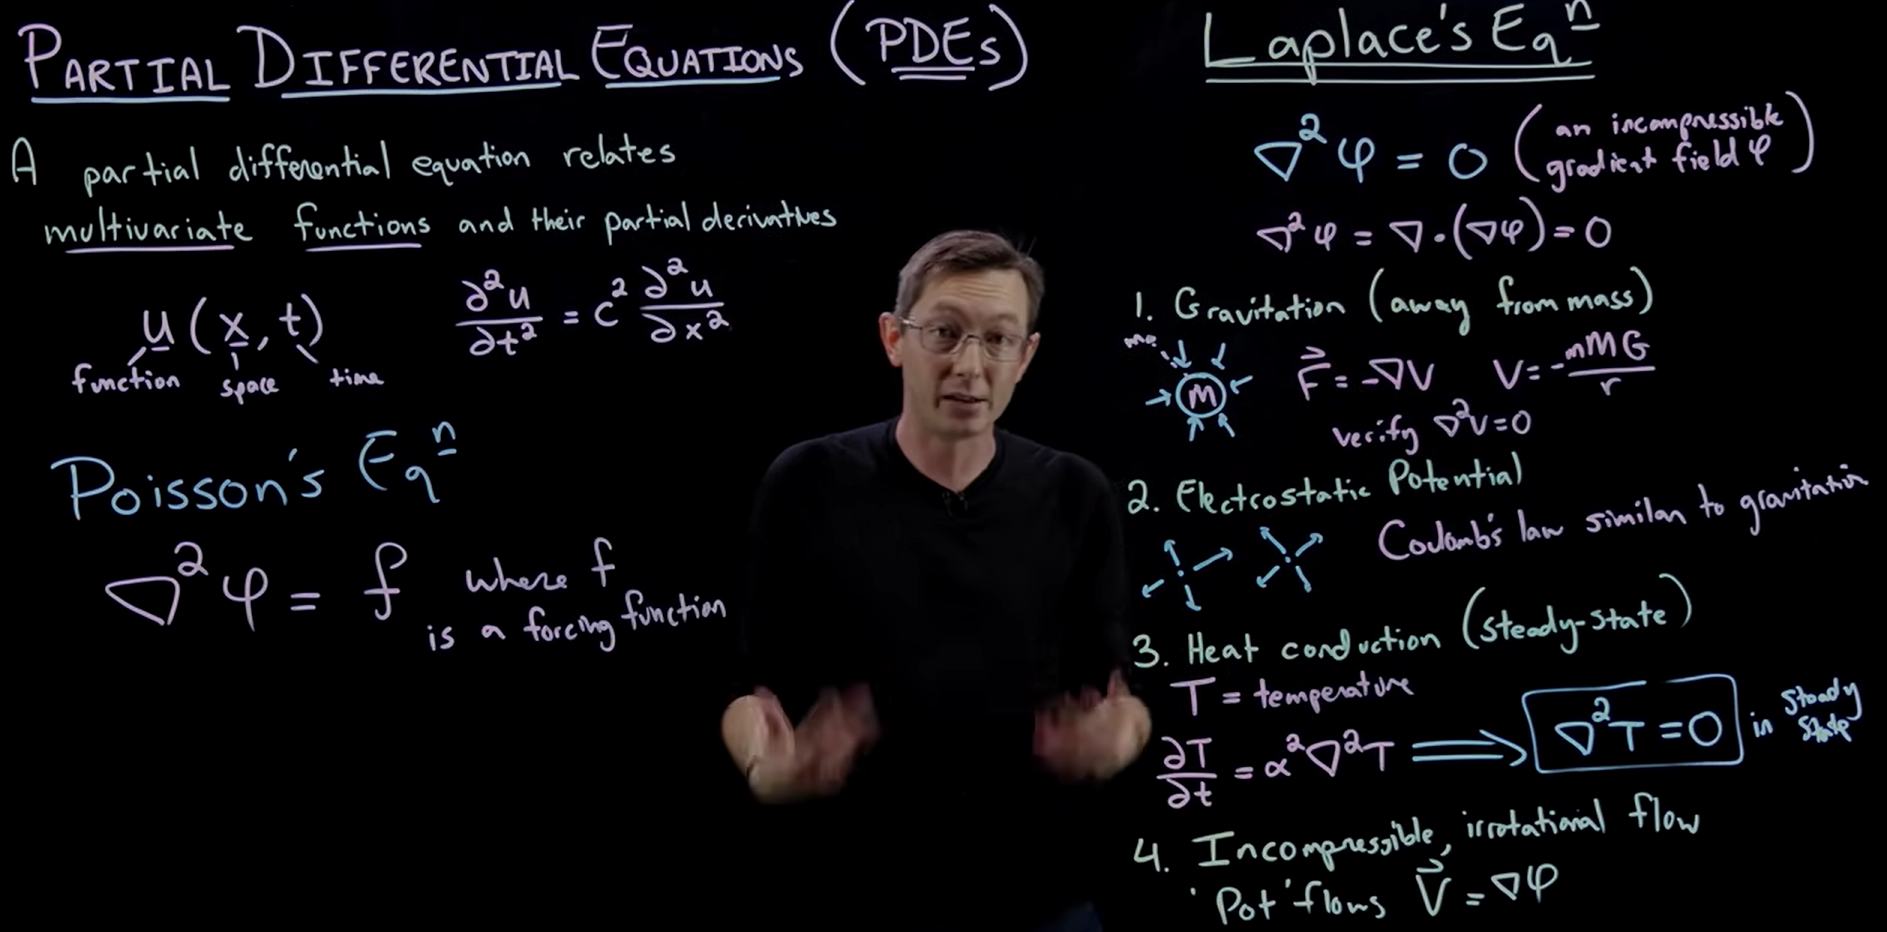 PARTIAL DIFFERENTIAL EQUATIONS (PDEs)
A partial differential equation relates
multivariate functions and their partial derivatives
u(x, t)
function space time
∂²u/∂t² = c² ∂²u/∂x²
Poisson's Eqⁿ
∇²φ = f where f
is a forcing function
Laplace's Eqⁿ
∇²φ = 0 (an incompressible
gradient field φ)
∇²φ = ∇·(∇φ) = 0
1. Gravitation (away from mass)
M
F⃗ = -∇V V = -mMG/r
verify ∇²V=0
2. Electrostatic Potential
Coulomb's law similar to gravitation
3. Heat conduction (steady-state)
T = temperature
∂T/∂t = α²∇²T ⟹ ∇²T = 0 in steady
state
4. Incompressible, irrotational flow
'Pot' flows V⃗ = ∇φ